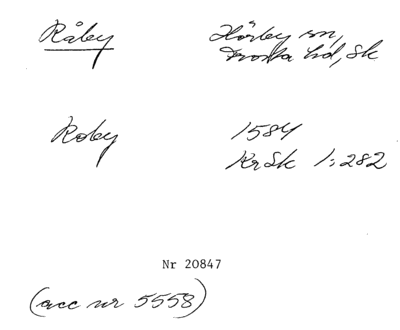 Råby Hörby sn,
Frosta hd, Sk
Roby 1584
KrSk 1:282
Nr 20847
(acc nr 5558)